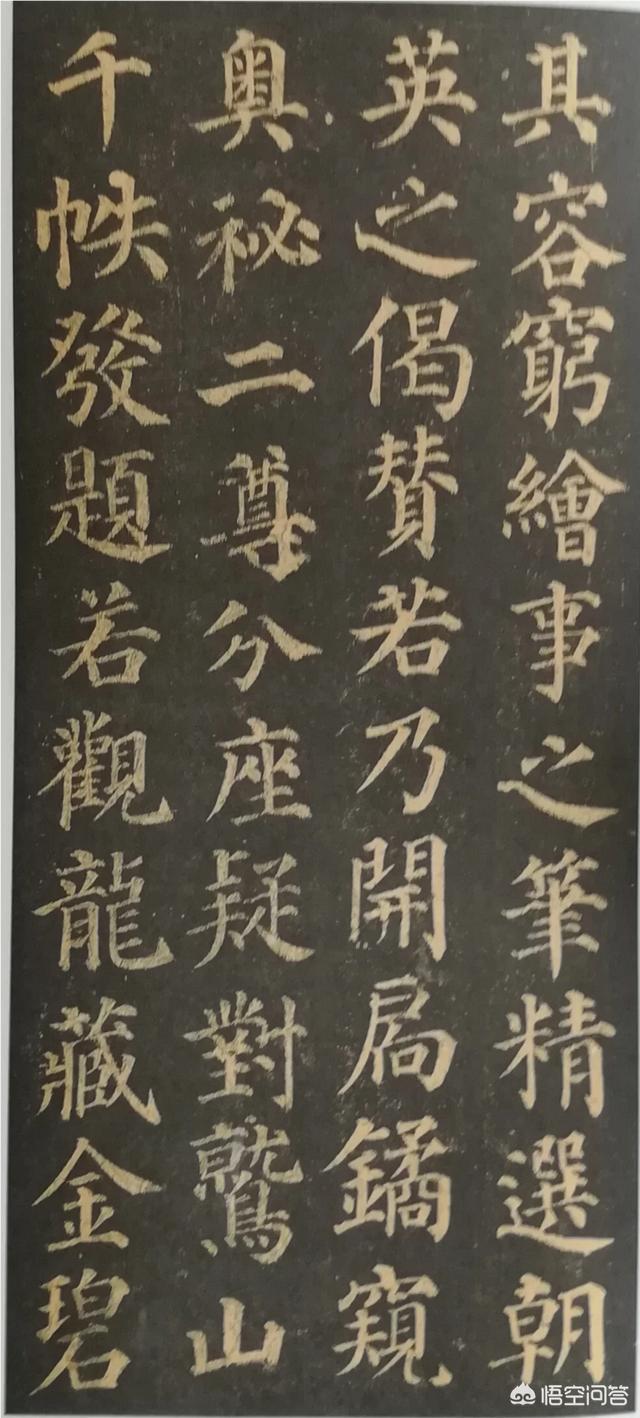 其容窮繪事之筆精選朝
英之偈賛若乃開扃鐍窺
奥祕二尊分座疑對鷲山
千帙發題若觀龍藏金碧
悟空问答